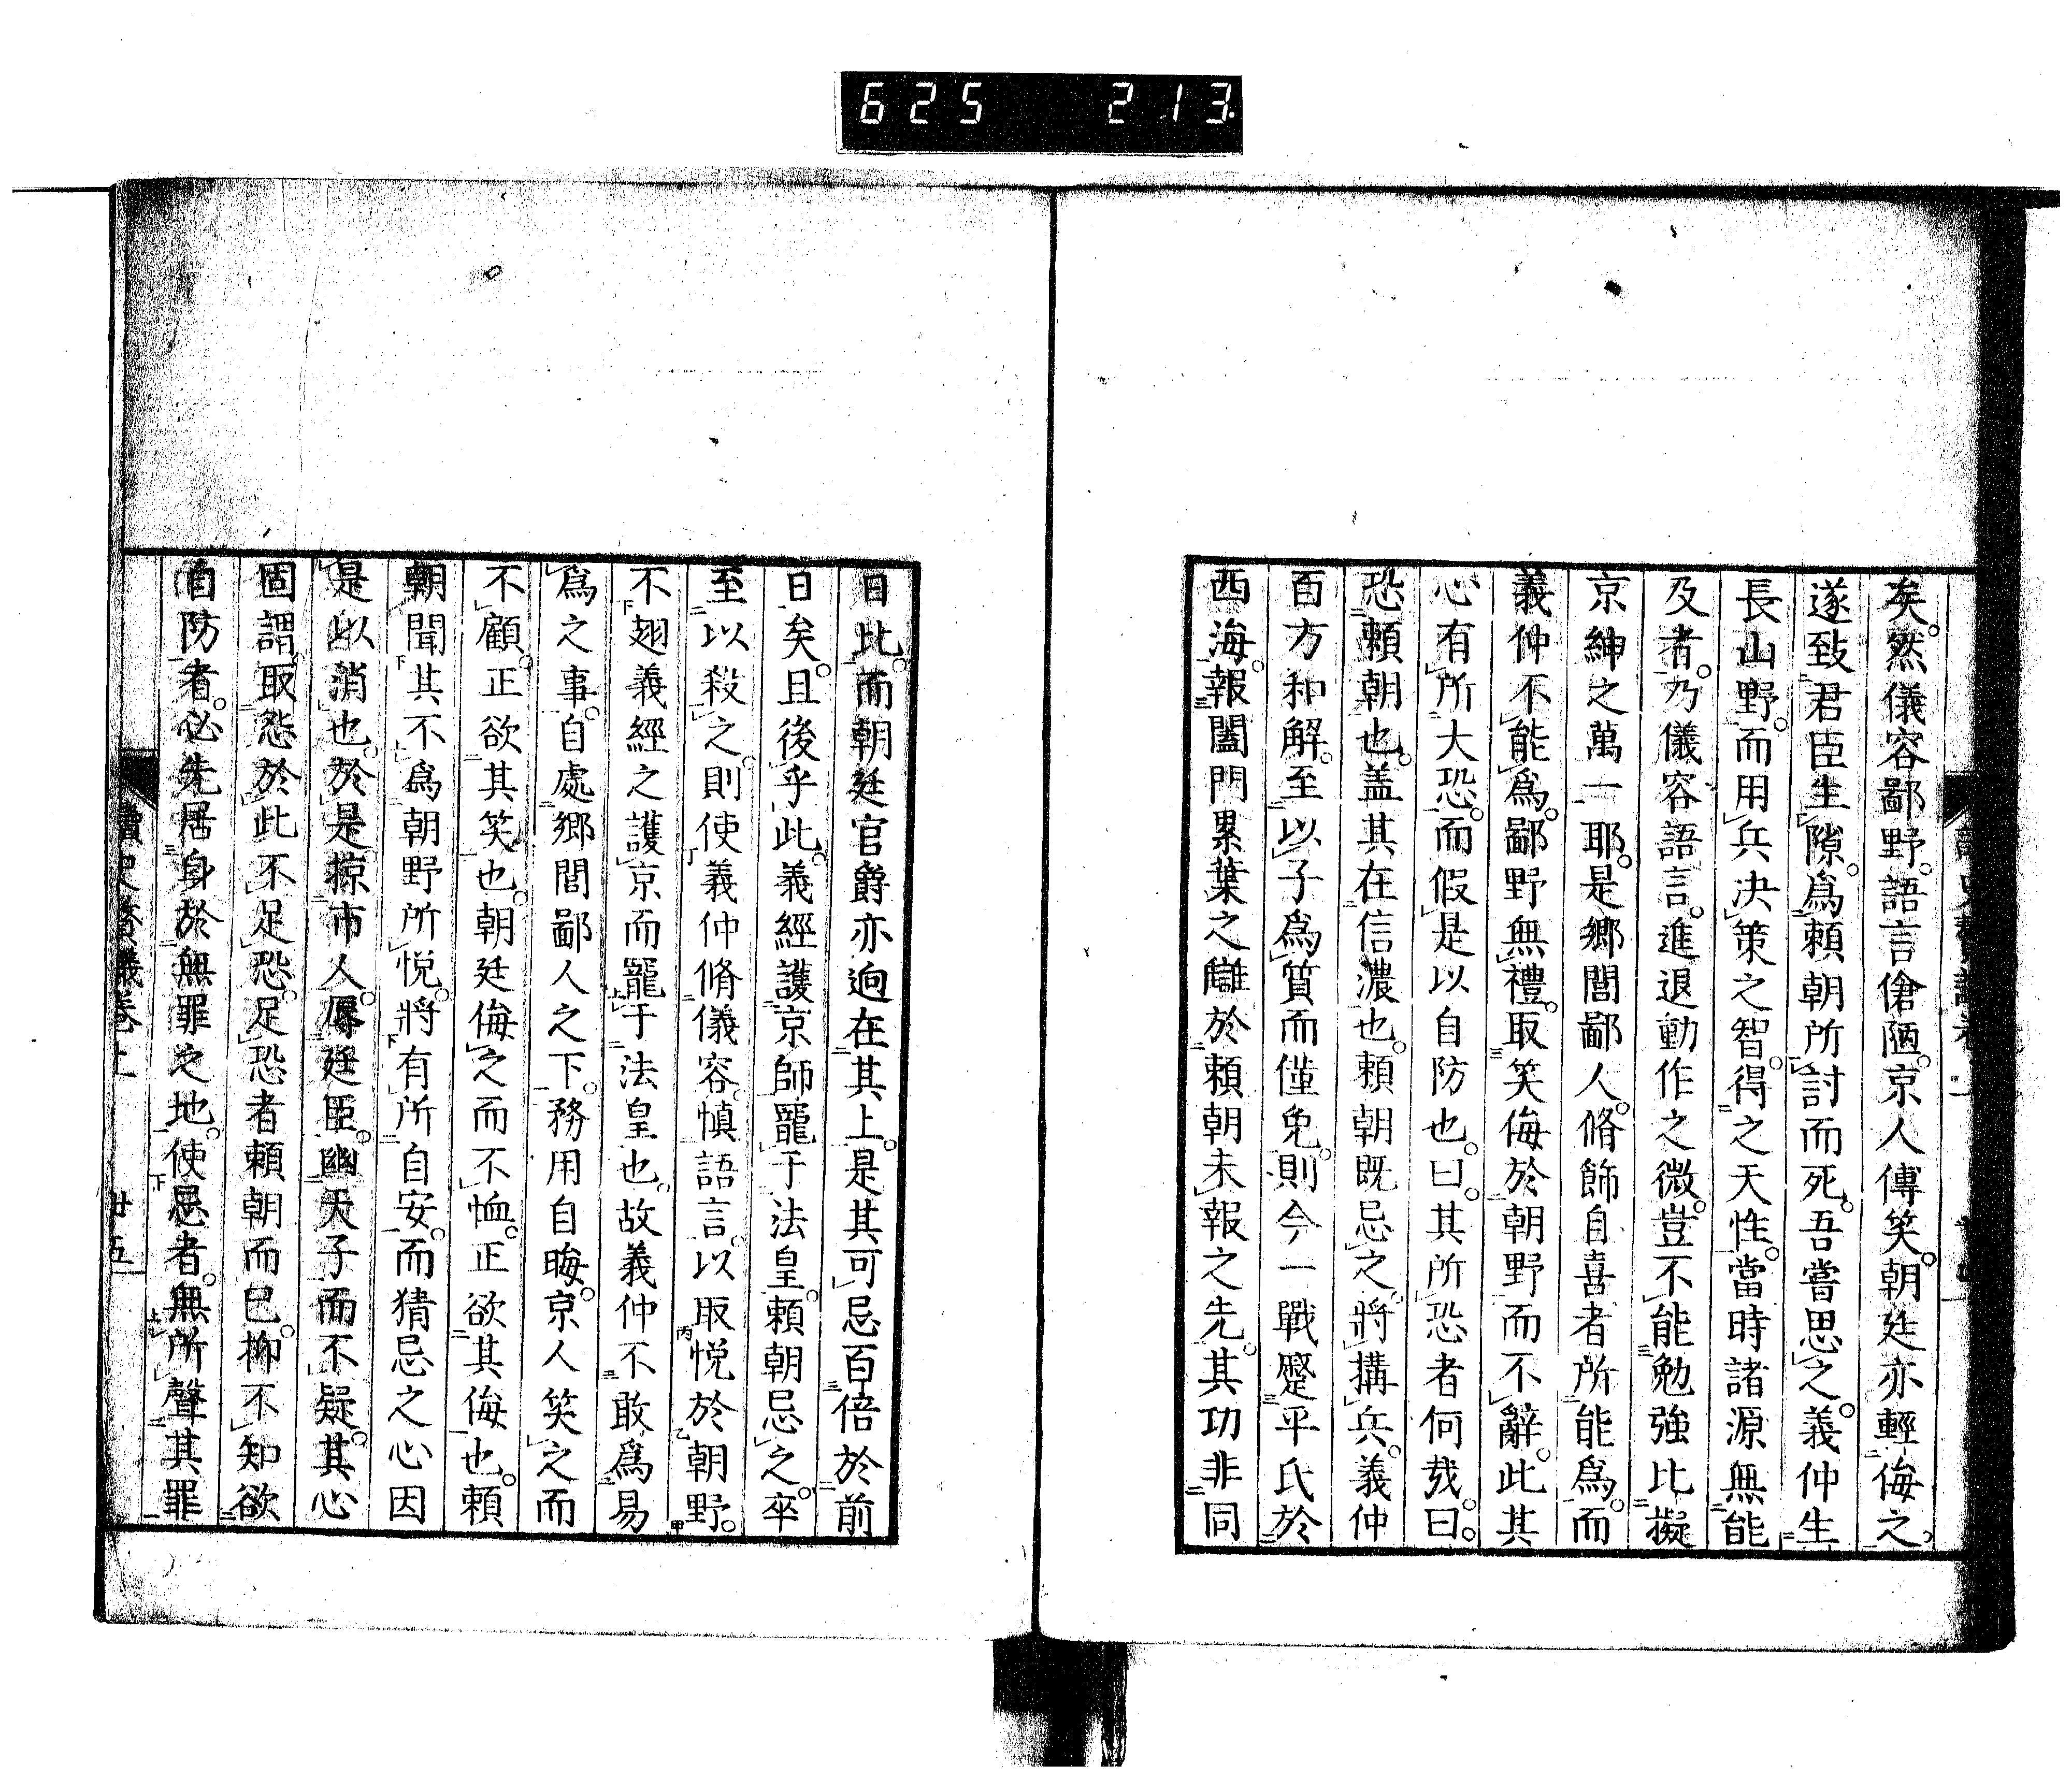 625 213
矣。然儀容鄙野。語言傖陋。京人傳笑。朝廷亦輕侮之。
遂致君臣生隙。爲頼朝所討而死。吾嘗思之。義仲生
長山野。而用兵决策之智。得之天性。當時諸源無能
及者。乃儀容語言。進退動作之微。豈不能勉強比擬
京紳之萬一耶。是鄉閭鄙人。脩飾自喜者所能爲。而
義仲不能爲。鄙野無禮。取笑侮於朝野而不辭。此其
心有所大恐。而假是以自防也。曰。其所恐者何㢤。曰。
恐頼朝也。盖其在信濃也。頼朝既忌之。將搆兵。義仲
百方和解。至以子爲質而僅免。則今一戰蹙平氏於
西海。報闔門累葉之讎於頼朝未報之先。其功非同
日比。而朝廷官爵亦逈在其上。是其可忌百倍於前
日矣。且後乎此。義經護京師寵于法皇。頼朝忌之。卒
至以殺之。則使義仲脩儀容。愼語言。以取悦於朝野。
不翅義經之護京而寵于法皇也。故義仲不敢爲易
爲之事。自處鄉閭鄙人之下。務用自晦。京人笑之而
不顧。正欲其笑也。朝廷侮之而不恤。正欲其侮也。頼
朝聞其不爲朝野所悦。將有所自安。而猜忌之心因
是以消也。於是掠市人。辱廷臣。幽天子而不疑。其心
固謂取怨於此不足恐。足恐者頼朝而已。抑不知欲
自防者。必先居身於無罪之地。使忌者。無所聲其罪
讀史贅議卷上 廿五